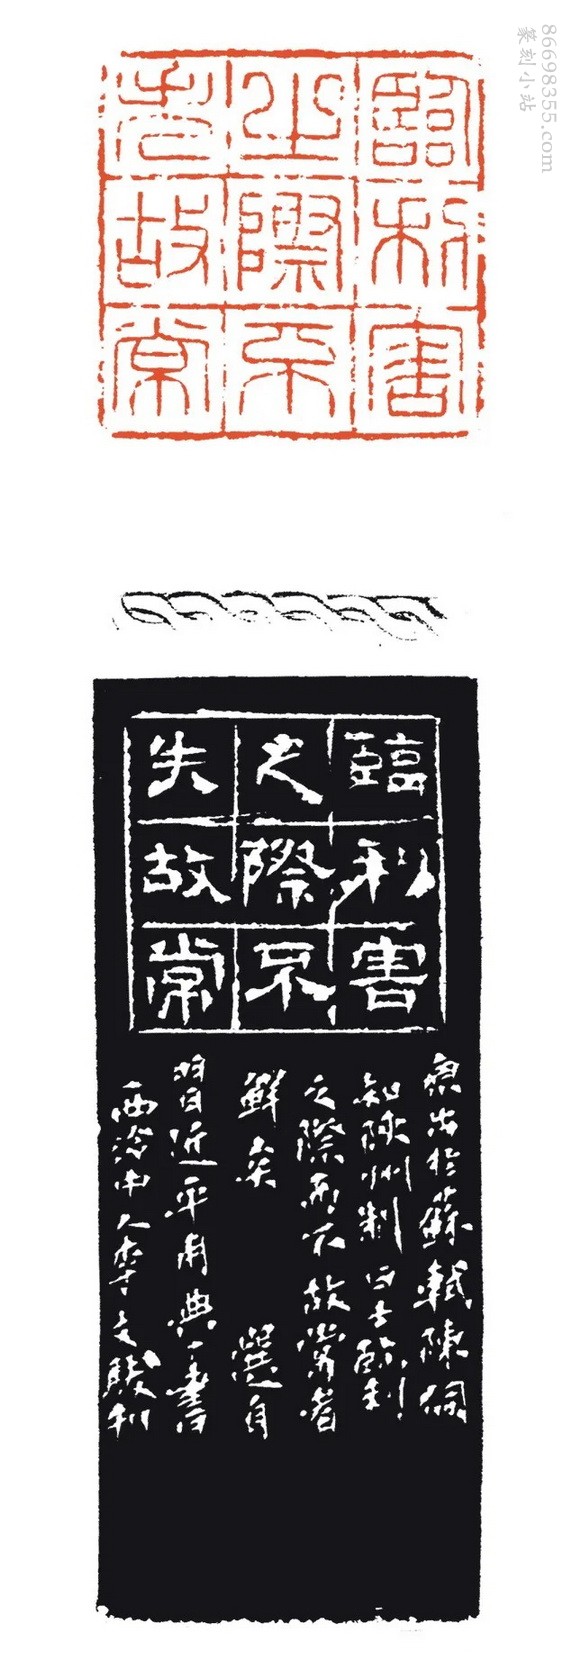 86698355.com
篆刻小站
臨利害
之際不
失故常
臨利害
之際不
失故常
出於蘇軾陳侗
知陝州制曰士臨利
之際而不故常者
鮮矣 選自
習近平用典一書
西泠中人李文駿